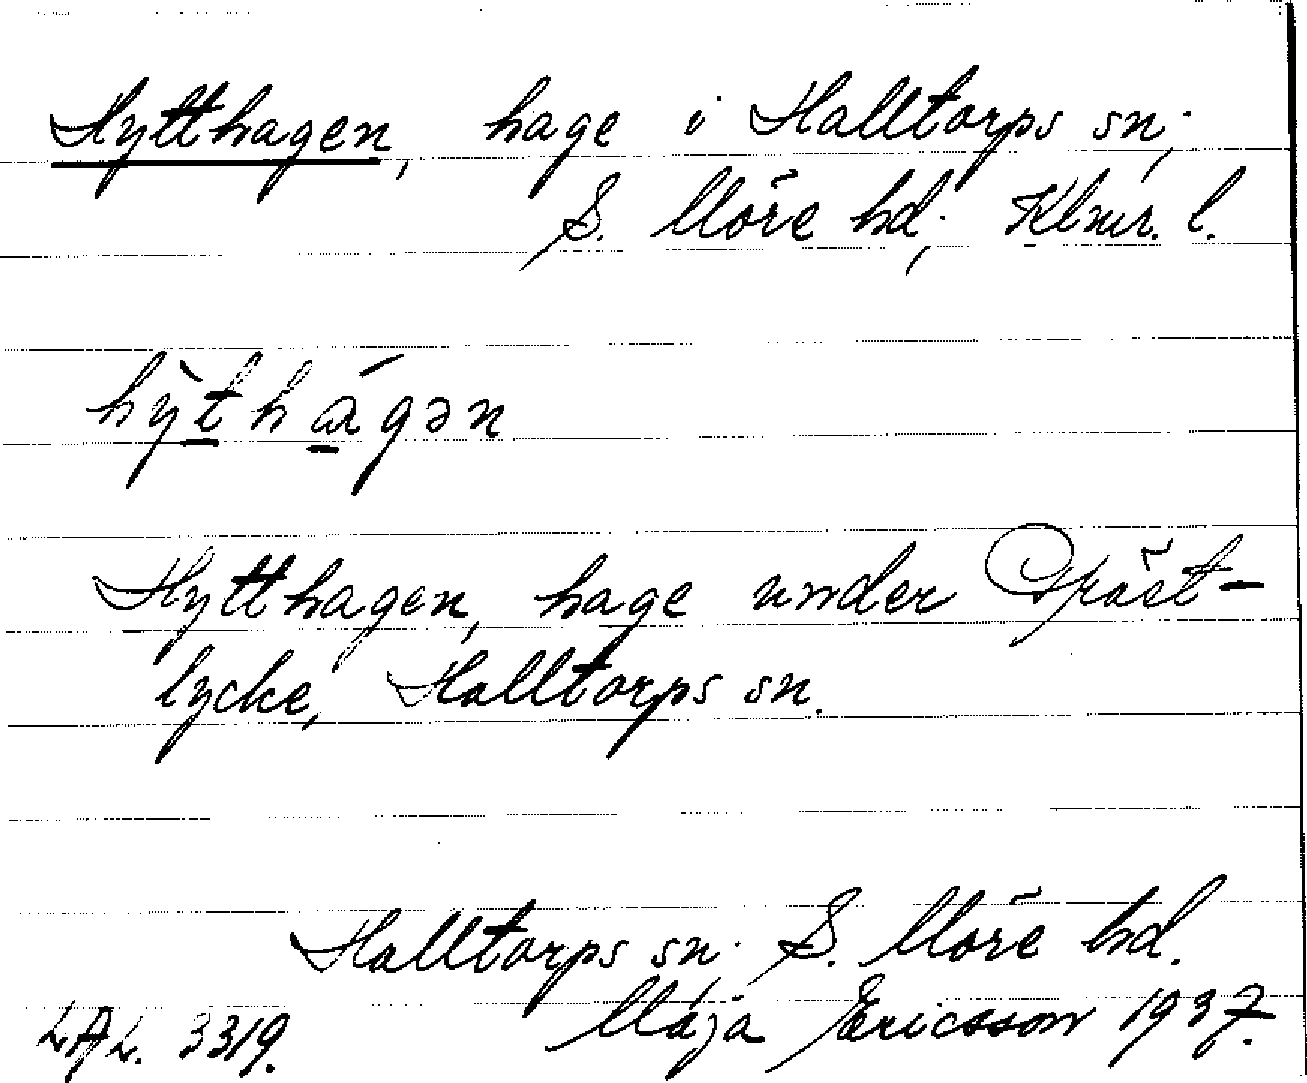 Hytthagen, hage i Halltorps sn.,
S. Möre hd., Klmr. l.
hỳthágən
Hytthagen, hage under Präst-
lycke, Halltorps sn.
Halltorps sn., S. Möre hd.
LAL. 3319. Maja Ericsson 1937.